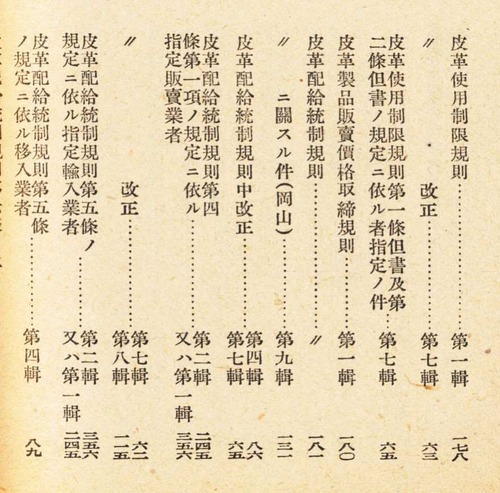 皮革使用制限規則……………第一輯 一七八
〃 改正……………第七輯 六三
皮革使用制限規則第一條但書及第
二條但書ノ規定ニ依ル者指定ノ件…第七輯 六五
皮革製品販賣價格取締規則………第一輯 一八〇
皮革配給統制規則……………〃 一八一
〃 ニ關スル件(岡山)………第九輯 一三一
皮革配給統制規則中改正………第四輯 八六
第七輯 六五
皮革配給統制規則第四
條第一項ノ規定ニ依ル
指定販賣業者……………第二輯 二四五
又ハ第一輯 三五六
〃 改正……………第七輯 六二
第八輯 一一五
皮革配給統制規則第五條ノ
規定ニ依ル指定輸入業者………第二輯 三五六
又ハ第一輯 二四五
皮革配給統制規則第五條
ノ規定ニ依ル移入業者………第四輯 八九